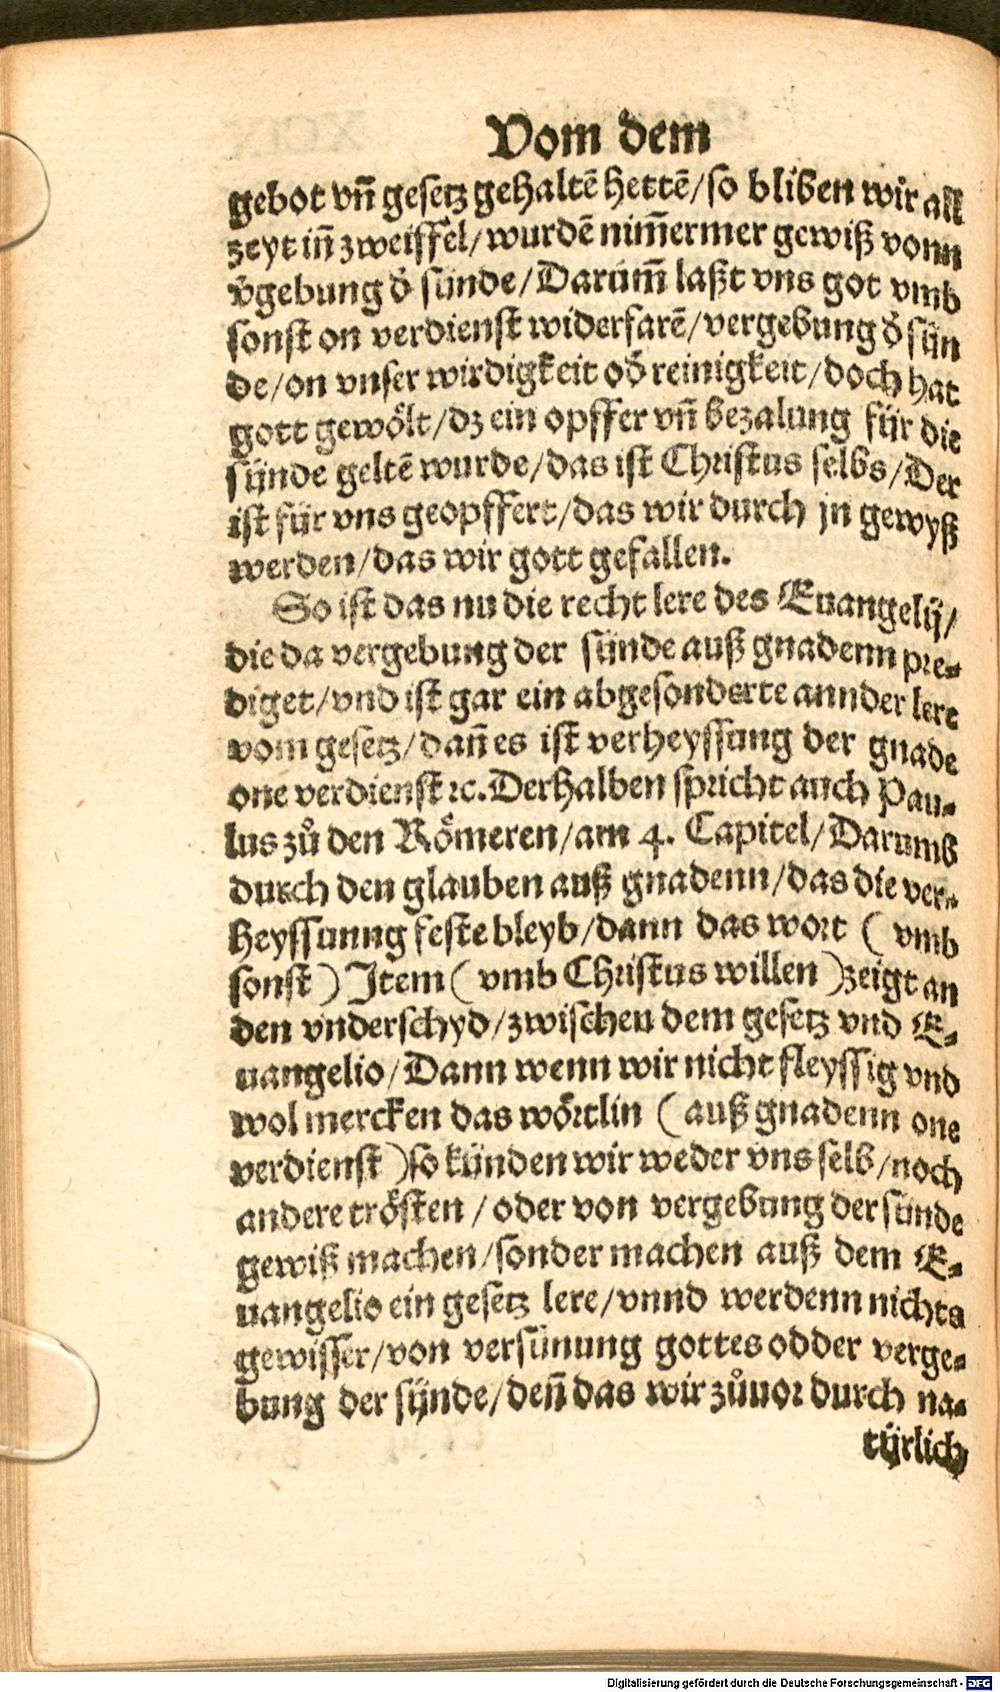 Vom dem
gebot vñ gesetz gehaltē hettē/so bliben wir all
zeyt in̄ zweiffel/wurdē nim̄ermer gewiß vonn
v̄gebung d̄ sünde/Darum̄ laßt vns got vmb
sonst on verdienst widerfarē/vergebung d̄ sün
de/on vnser wirdigkeit od̄ reinigkeit/doch hat
gott gewölt/dz ein opffer vñ bezalung für die
sünde geltē wurde/das ist Christus selbs/Der
ist für vns geopffert/das wir durch jn gewyß
werden/das wir gott gefallen.
So ist das nu die recht lere des Euangelij/
die da vergebung der sünde auß gnadenn pre⸗
diget/vnd ist gar ein abgesonderte annder lere
vom gesetz/dañ es ist verheyssung der gnade
one verdienst ꝛc. Derhalben spricht auch Pau⸗
lus zů den Römeren/am 4. Capitel/Darumb
durch den glauben auß gnadenn/das die ver⸗
heyssunng feste bleyb/dann das wort ( vmb
sonst ) Item ( vmb Christus willen ) zeigt an
den vnderschyd/zwischen dem gesetz vnd E⸗
uangelio/Dann wenn wir nicht fleyssig vnd
wol mercken das wörtlin ( auß gnadenn one
verdienst ) so künden wir weder vns selb/noch
andere trösten / oder von vergebung der sünde
gewiß machen/sonder machen auß dem E⸗
uangelio ein gesetz lere/vnnd werdenn nichts
gewisser/von versünung gottes odder verge⸗
bung der sünde/deñ das wir zůuor durch na⸗
türlich
Digitalisierung gefördert durch die Deutsche Forschungsgemeinschaft - DFG